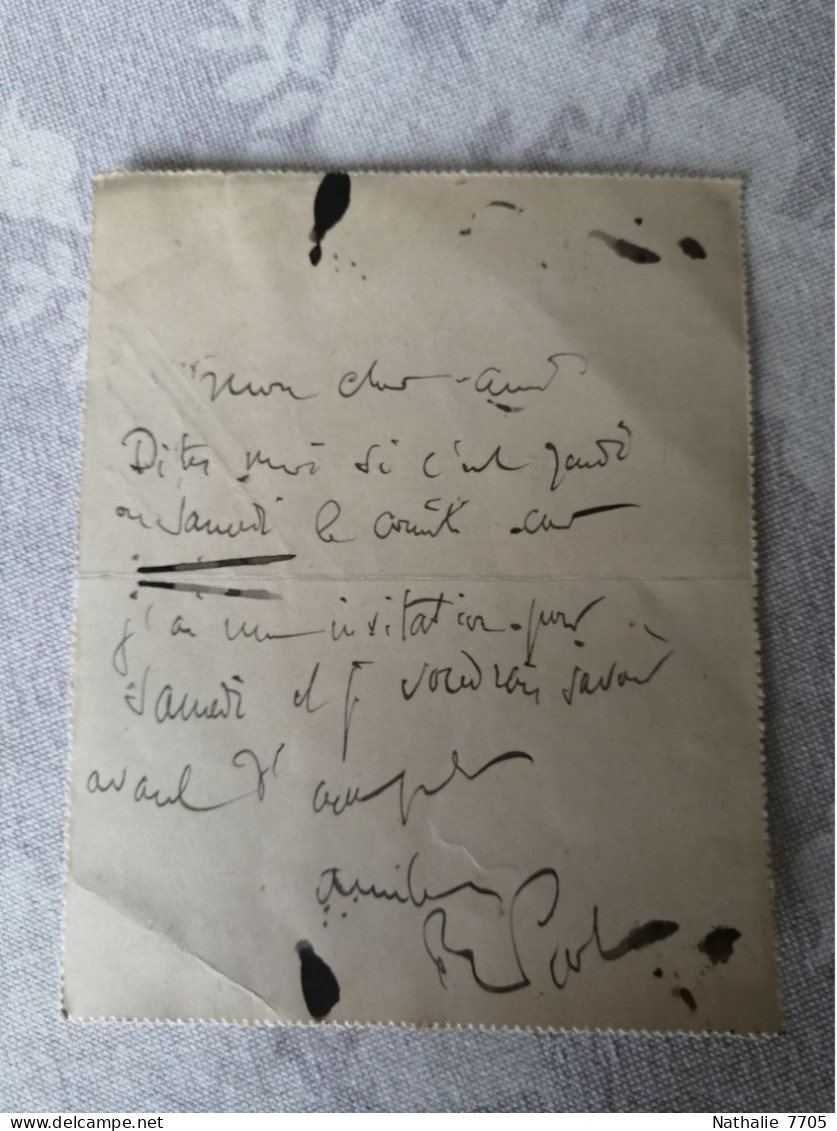 mon cher ami
Dites moi si c'est jeudi
ou samedi le comité car
j'ai une invitation pour
samedi et je voudrais savoir
avant d'accepter
amitiés
Nathalie 7705